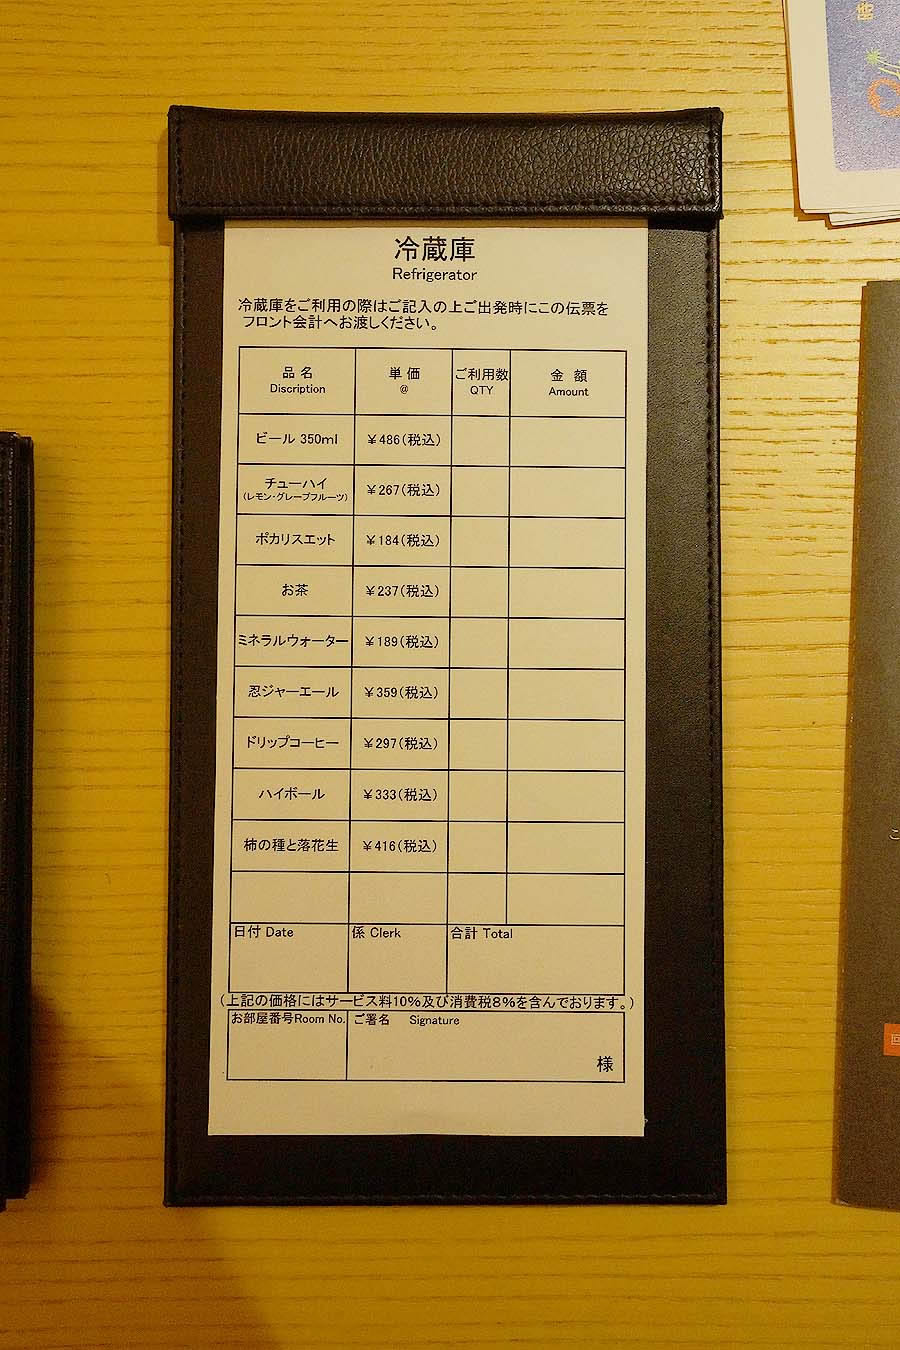 冷蔵庫
Refrigerator
冷蔵庫をご利用の際はご記入の上ご出発時にこの伝票を
フロント会計へお渡しください。
品名 単価 ご利用数 金額
Discription @ QTY Amount
ビール 350ml ￥486(税込)
チューハイ
(レモン・グレープフルーツ) ￥267(税込)
ポカリスエット ￥184(税込)
お茶 ￥237(税込)
ミネラルウォーター ￥189(税込)
忍ジャーエール ￥359(税込)
ドリップコーヒー ￥297(税込)
ハイボール ￥333(税込)
柿の種と落花生 ￥416(税込)
日付 Date 係 Clerk 合計 Total
(上記の価格にはサービス料10%及び消費税8%を含んでおります。)
お部屋番号Room No. ご署名 Signature
様